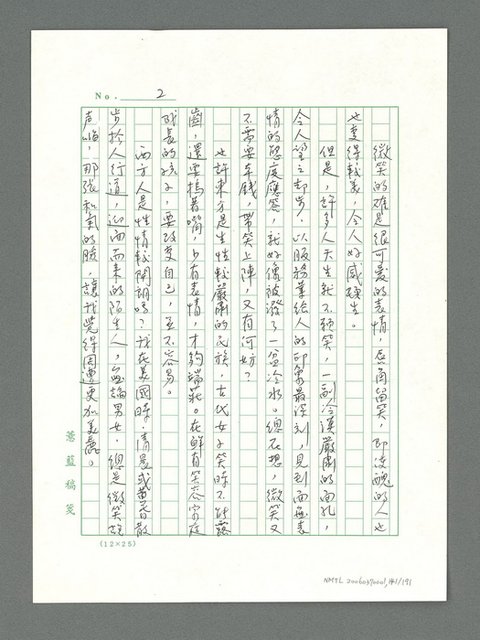 No. 2
微笑的確是很可愛的表情，唇角留笑，即淩醜的人也
也變得較美，令人好感頓生。
但是，許多人天生就不願笑，一副冷漠嚴肅的面孔，
令人望之却步，以服務業給人的印象最深刻，見到面無表
情的態度應答，就好像被潑了一盆冷水。總在想，微笑又
不需要本錢，帶笑上陣，又有何妨？
也許東方是生性較嚴肅的民族，古代女子笑時不能露
齒，還要摀着嘴，少有表情，才夠端莊。在鮮有笑容家庭
成長的孩子，要改變自己，並不容易。
西方人是性情較開朗嗎？我在美國時，清晨或黃昏散
步於人行道，迎面而來的陌生人，無論男女，總是微笑
声嗨，那張和氣的臉，讓我覺得周遭更加美麗。
薏藍稿箋
(12×25)
NMTL 20060390001,141/191